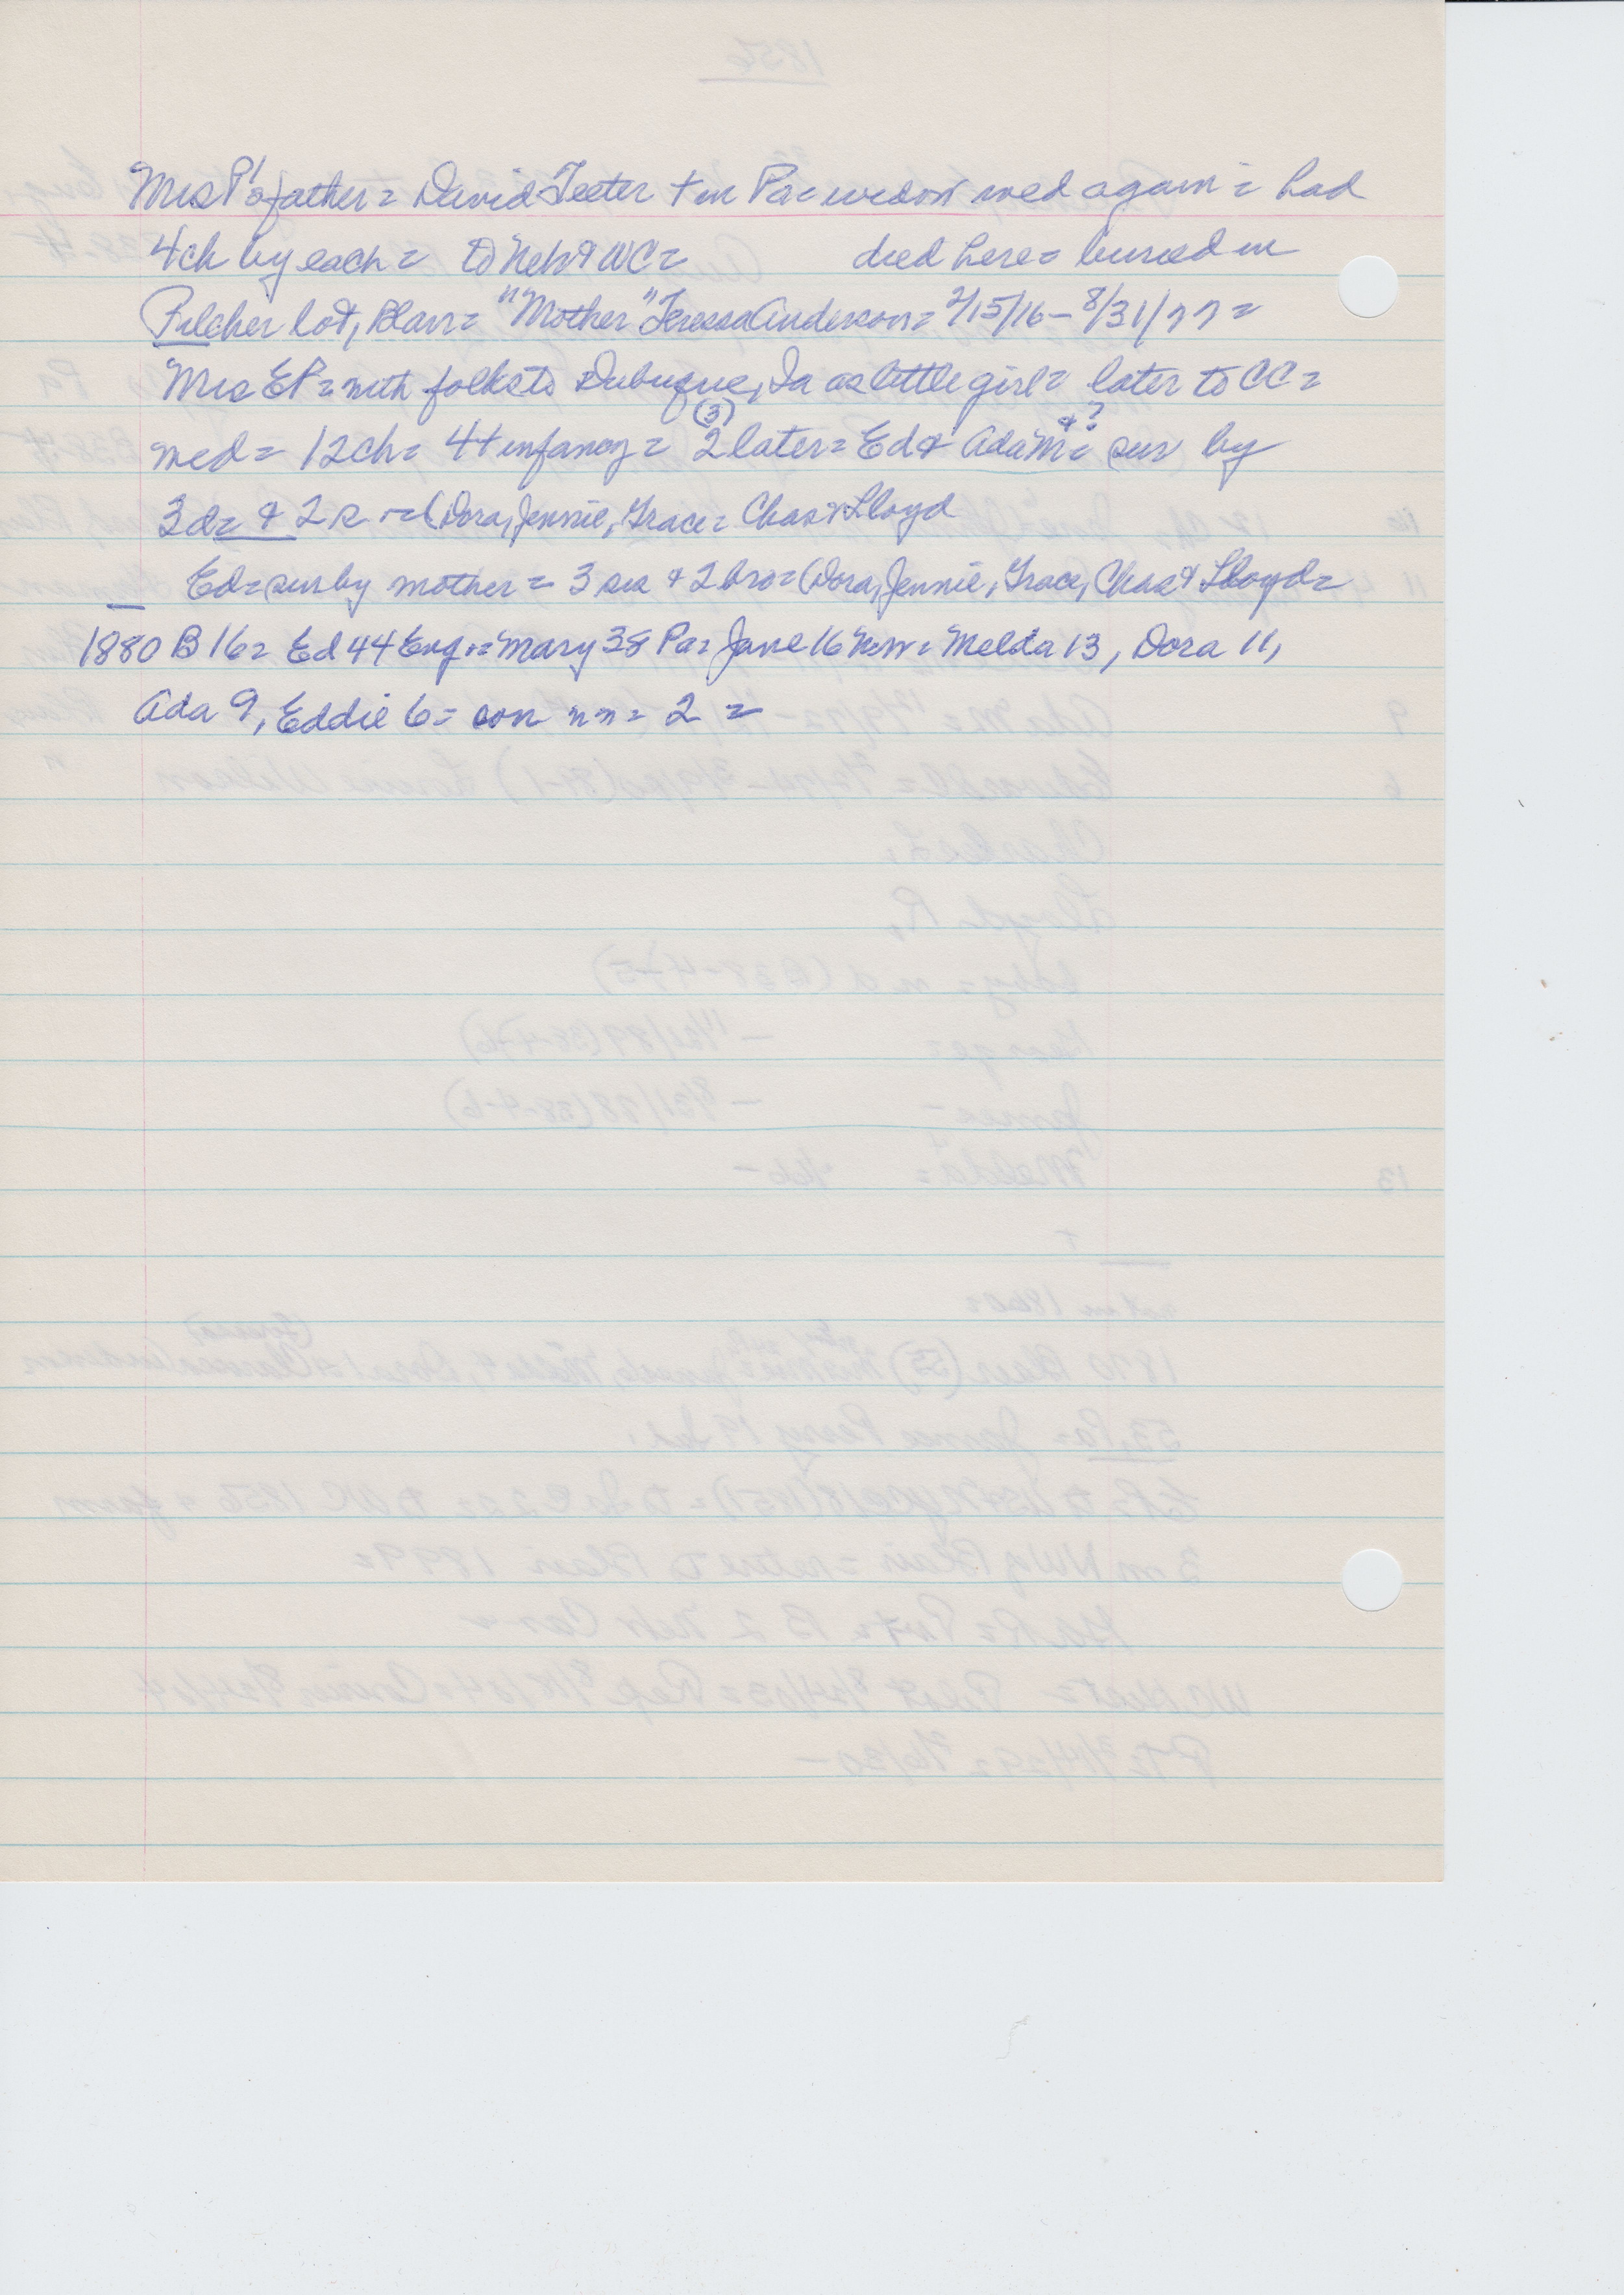 Mrs P's father = David Teeter + in Pa = widow med again = had
4 ch by each = to Neb & WC = died here = buried in
Pilcher lot, Blair = "Mother" Teressa Anderson = 2/15/16 - 8/31/77 =
Mrs EP = with folks to Dubuque, Ia as little girl = later to CC =
med = 12 ch = 4 + infancy = 2 (3) later = Ed & Ada M = & ? sur by
3 d = & 2 s = (Dora, Jennie, Grace = Chas & Lloyd
Ed = sur by mother = 3 sis & 2 bro = (Dora, Jennie, Grace, Chas & Lloyd =
1880 B 16 = Ed 44 Eng = Mary 38 Pa = Jane 16 Neb = Melda 13, Dora 11,
Ada 9, Eddie 6 = son nn = 2 =